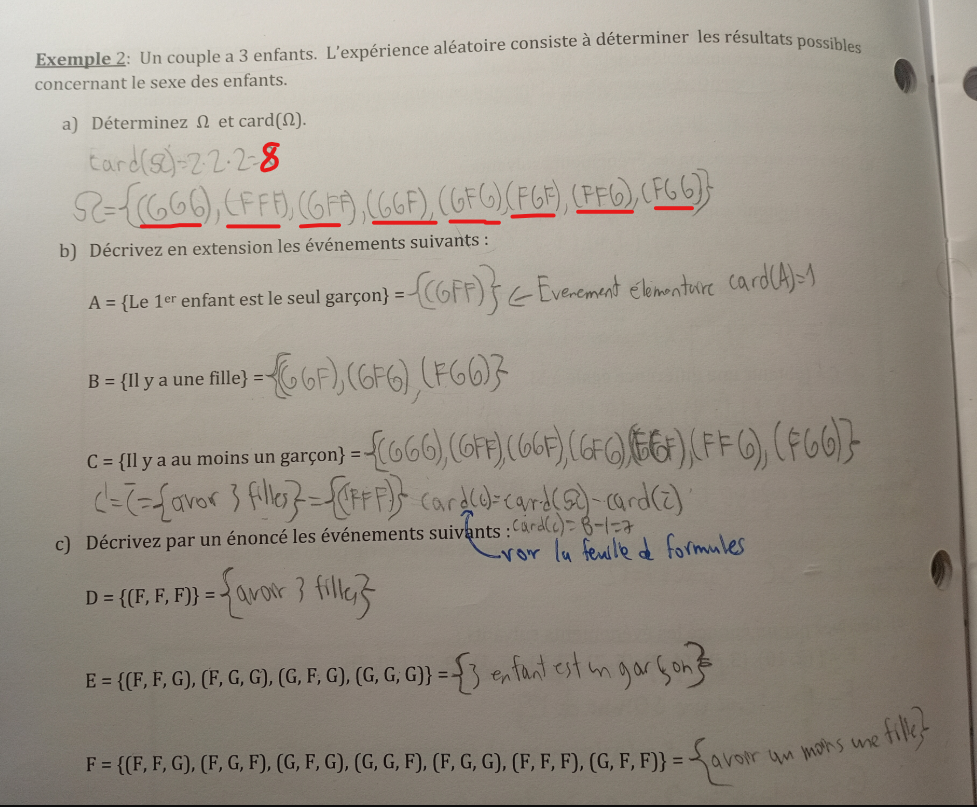 Exemple 2: Un couple a 3 enfants. L'expérience aléatoire consiste à déterminer les résultats possibles
concernant le sexe des enfants.
a) Déterminez Ω et card(Ω).
card(Ω)=2·2·2=8
Ω={(GGG),(FFF),(GFF),(GGF),(GFG)(FGF),(FFG),(FGG)}
b) Décrivez en extension les événements suivants :
A = {Le 1er enfant est le seul garçon} = {(GFF)} ← Evenement élementaire card(A)=1
B = {Il y a une fille} = {(GGF),(GFG),(FGG)}
C = {Il y a au moins un garçon} = {(GGG),(GFF),(GGF),(GFG)(FGF),(FFG),(FGG)}
C'=C̅={avor 3 filles}={(FFF)} card(c)=card(Ω)-card(c̅)
card(c)=8-1=7
c) Décrivez par un énoncé les événements suivants :
voir la feuille de formules
D = {(F, F, F)} = {avoir 3 filles}
E = {(F, F, G), (F, G, G), (G, F, G), (G, G, G)} = {3 enfant est un garçon}
F = {(F, F, G), (F, G, F), (G, F, G), (G, G, F), (F, G, G), (F, F, F), (G, F, F)} = {avoir un moins une fille}